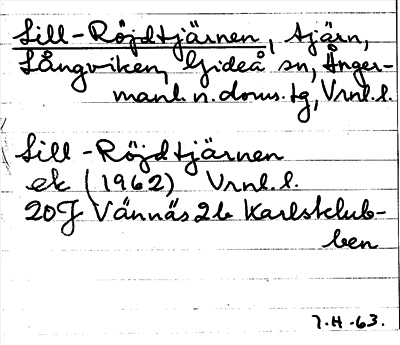 Lill-Röjdtjärnen, tjärn,
Långviken, Gideå sn, Ånger-
manl. n. doms. tg, Vrnl. l.
Lill-Röjdtjärnen
ek (1962) Vrnl. l.
20J Vännäs 2b Karlsklub-
ben
7.H.-63.